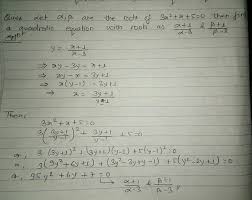 Ques. Let α, β are the roots of 3x²+x+5=0 then find
a quadratic equation with roots as α+1/α-3 & β+1/β-3
y = x+1/x-3
⇒ xy-3y = x+1
⇒ xy-x = 3y+1
⇒ x(y-1) = 3y+1
⇒ x = 3y+1/y-1
Then,
3x²+x+5=0
3(3y+1/y-1)² + 3y+1/y-1 + 5=0
3(3y+1)² + (3y+1)(y-1) + 5(y-1)²=0
3(9y²+6y+1) + (3y²-3y+y-1) + 5(y²-2y+1)=0
35y²+6y+7=0
α+1/α-3 & β+1/β-3